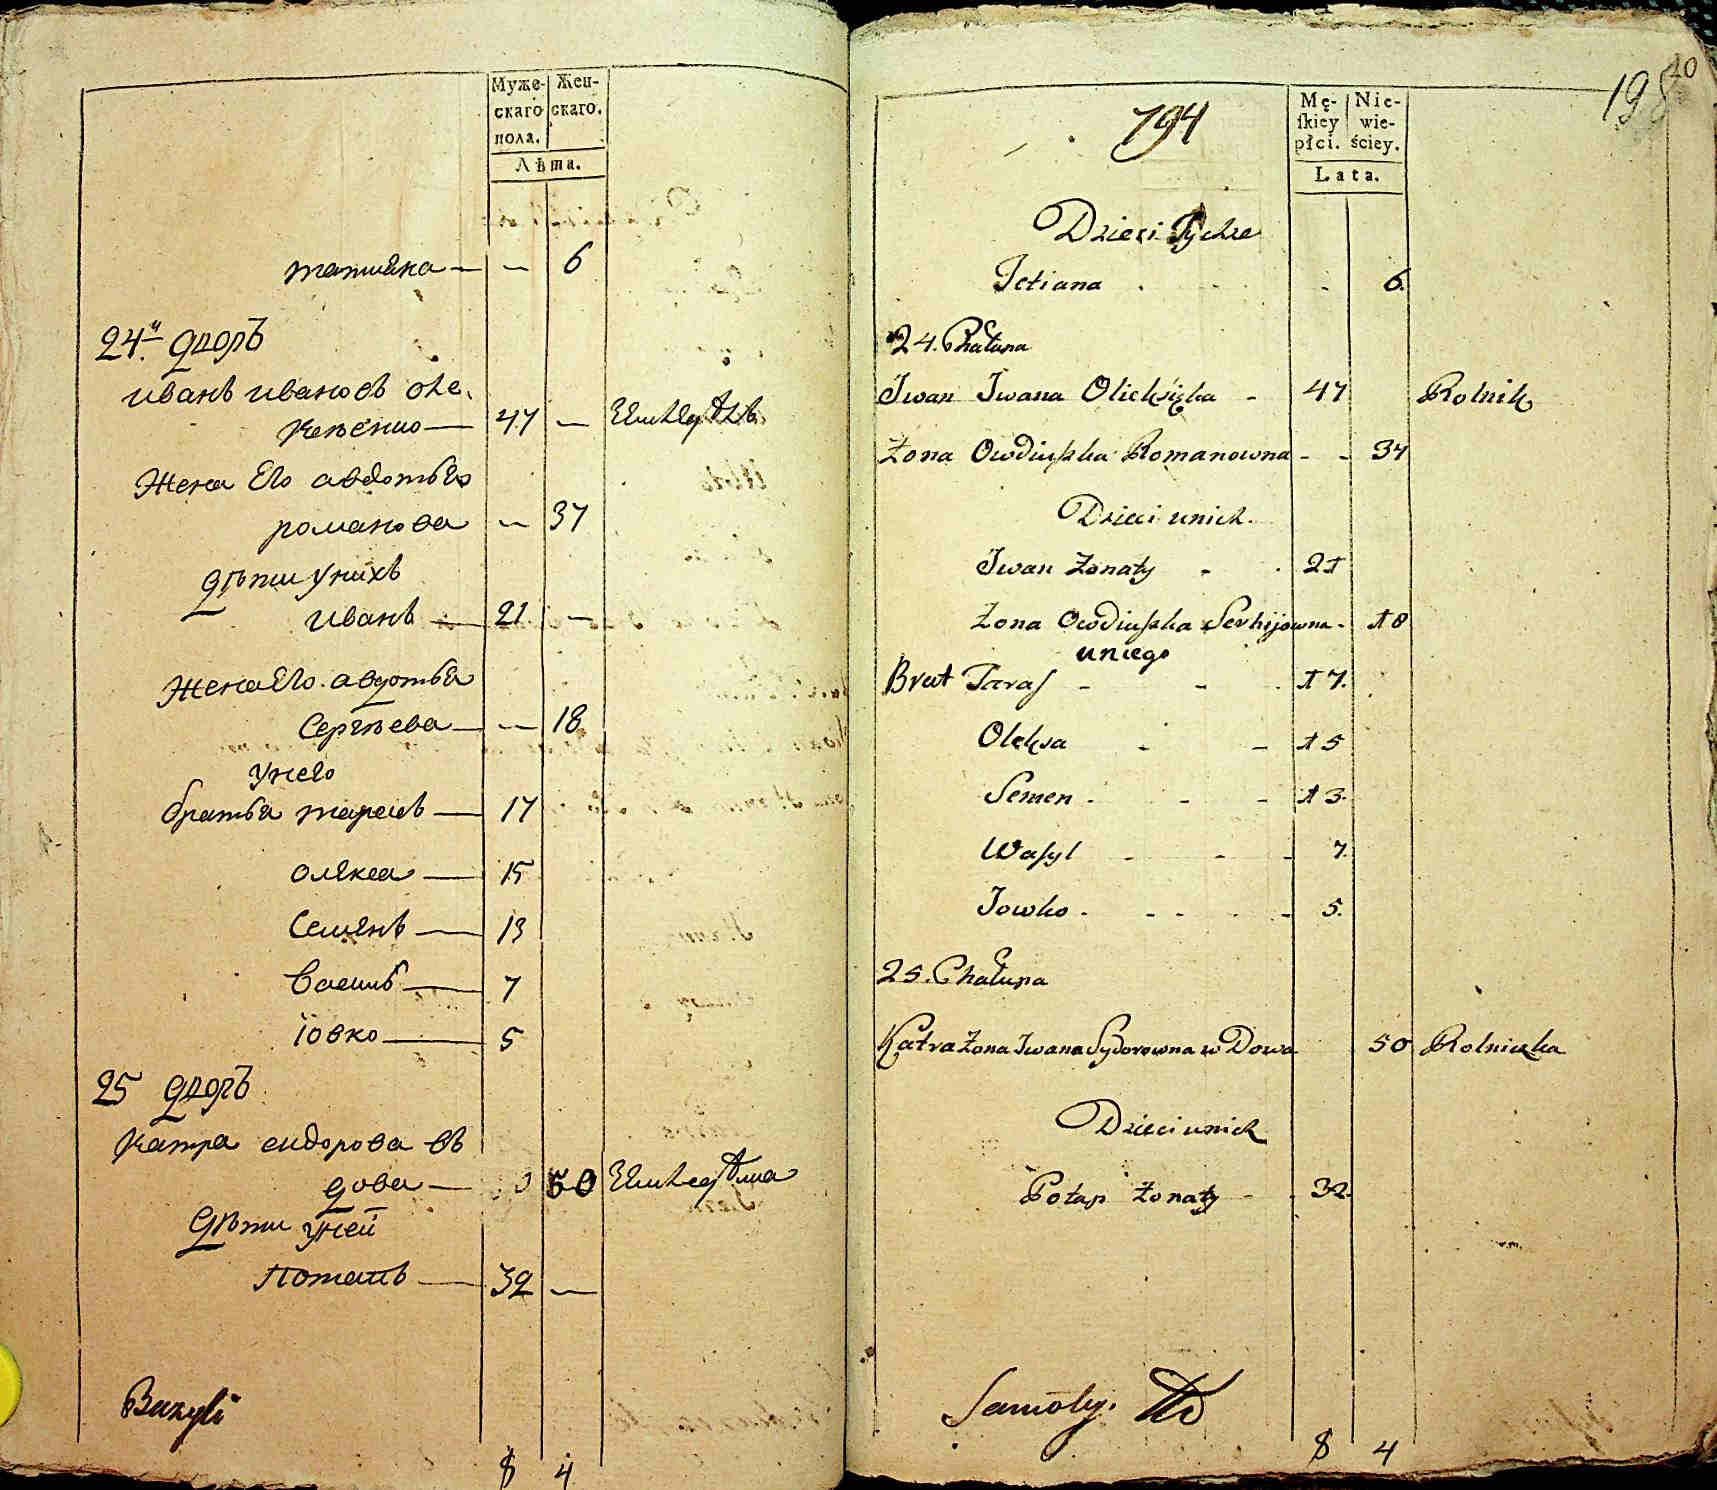 Муже- Жен-
скаго скаго.
пола.
Лѣта.
татияна — — 6
24й дворъ
иванъ ивановъ оле-
ксѣенко — 47 —
жена Его авдотья
романова — 37
дѣти унихъ
иванъ — 21 —
жена Его авдотья
Сергѣева — — 18
унего
братья тарасъ — 17
олекса — 15
Семянъ — 13
василь — 7
їовко — 5
25 дворъ
катра сидорова въ
дова — 50
дѣти уней
Потапъ — 32 —
Bazyli
8 4
198 20
794
Mę- Nie-
skiey wie-
płci. ściey.
Lata.
Dzieci Tychże
Tetiana - 6.
24. Chałupa
Iwan Iwana Olicksiszka - 47 Rolnik
Żona Owdiuszka Romanowna - - 37
Dzieci unich.
Iwan Żonaty - 21
Żona Owdiuszka Serhijowna - 18
uniego
Brat Taras - - 17.
Oleksa - - 15
Semen - - - 13.
Wasyl - - - 7.
Jowko - - - 5.
25. Chałupa
Katra Żona Iwana Sydorowna w Dowa 50 Rolniczka
Dzieci unich
Potap Żonaty - 32.
Samoły.
8 4